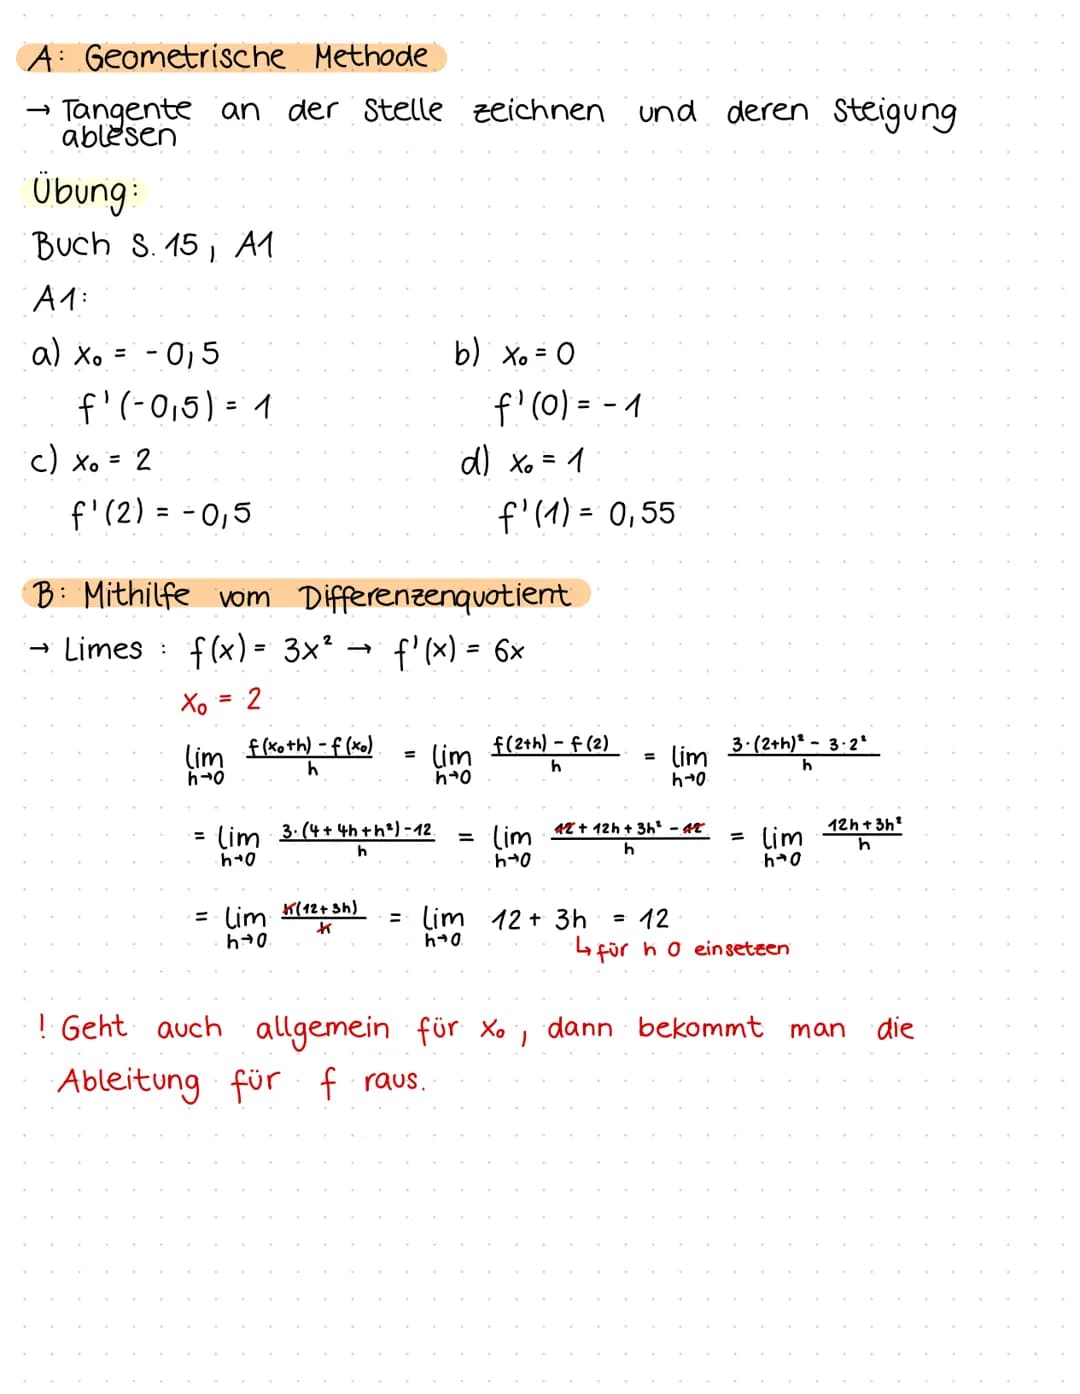 A: Geometrische Methode
→ Tangente an der Stelle zeichnen und deren Steigung
ablesen
Übung:
Buch S. 15, A1
A1:
a) x₀ = -0,5 b) x₀ = 0
f'(-0,5) = 1 f'(0) = -1
c) x₀ = 2 d) x₀ = 1
f'(2) = -0,5 f'(1) = 0,55
B: Mithilfe vom Differenzenquotient
→ Limes : f(x) = 3x² → f'(x) = 6x
x₀ = 2
lim h→0 (f(x₀+h) - f(x₀))/h = lim h→0 (f(2+h) - f(2))/h = lim h→0 (3·(2+h)² - 3·2²)/h
= lim h→0 (3·(4 + 4h + h²) - 12)/h = lim h→0 (12 + 12h + 3h² - 12)/h = lim h→0 (12h + 3h²)/h
= lim h→0 (h(12 + 3h))/h = lim h→0 12 + 3h = 12
↳ für h 0 einsetzen
! Geht auch allgemein für x₀, dann bekommt man die
Ableitung für f raus.